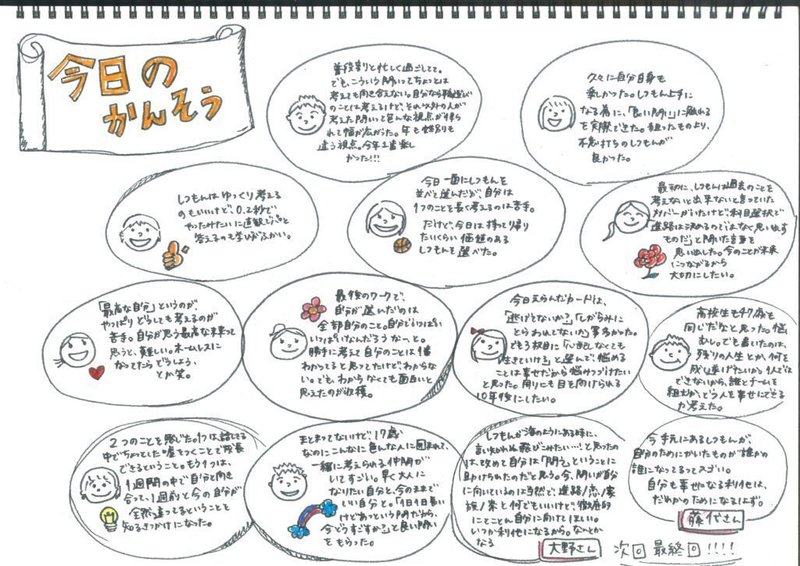 今日の
かんそう
普段割と忙しく過ごしてて。
でも、こういう問いってちょっとは
考えても向き合えない。自分なら
のことは考えるけど、それ以外の人が
考えた問いと色んな視点が得ら
れて幅が広がった。年も性別も
違う視点。今年1番楽し
かった!!!
久々に自分自身も
楽しかった。しつもん上手に
なる為に、「良い問い」に触れる
を実際できた。狙ったものより、
不意打ちのしつもんが
良かった。
しつもんはゆっくり考える
のもいいけど、0.2秒で
やったけみたいに直観でパっと
答えるのも学びがふかい。
今日一番にしつもんを
並べて選んだが、自分は
1つのことを長く考えるのは苦手。
だけど、今日は持って帰り
たいくらい価値のある
しつもんを選べた。
最初に、しつもんは過去のことを
考えないと出来ないと言っていた
メンバーがいたけど、科目選択で
進路は決めるのではなく思い出す
ものだ」と聞いた言葉を
思い出した。今のことが未来
につながるから
大切にしたい。
「最高な自分」というのが
やっぱりどうしても考えるのが
苦手。自分が思う最高な未来って
思うと、難しい。ホームレスに
なってたらどうしよう、
とか笑。
最後のワークで、
自分が選んだのは
全部自分のこと。自分でいっぱい
いっぱいなんだろうなーと。
勝手に考えて自分のことは1番
わかってると思ってたけど、わからな
い。でも、わからなくても面白いと
思えたのが収穫。
今日えらんだカードは、
「逃げてないか?」「しがらみに
とらわれてないか」事多かった。
でも1枚目に「いきしなくても
生きていける」と選んで、悩める
ことは幸せだから悩みつづけたい
と思った。周りにも目を向けられる
10年後にしたい。
高校生も47歳も
同じだなと思った。悩
むし。でも違いたのは、
残りの人生とか、何を
成し遂げたいか。1人では
できないから、誰とチームを
組むか、どう人を幸せにできる
か考えた。
2つのことを感じた。1つは、話してる
中でちがっていた嘘をつくことで成長
できるということ。もう1つは、
1週間の中で自分と向き
合って、1週前と今の自分が
全然違ってるということを
知るきっかけになった。
まとまってないけど、17歳
なのにこんなに色んな人に囲まれて、
一緒に考えられる仲間が
いてすごい。早く大人に
なりたい自分と、今のままで
いい自分と。「1日49日暑い
けどあっという間だから、
今どうすごすか?」と良い問い
をもらった。
しつもんが海のようにある時に、
言い知れぬ飛びこみたいー!と思ったの
は、改めて自分は「問う」ということに
助けられたのだと思う。今、問いが自分
に向いているのは当然で、進路/恋/家
族/業と何でもいいけど、徹底的
にとことん、自分に向けてほしい。
いつか利他になるから。なんとか
なる
大野さん
今手元にあるしつもんが、
自分のためにかいたものが誰かの
誰になってるってスゴい。
自分も幸せになる利他は、
だれかのためになるはず。
藤代さん
次回最終回!!!!